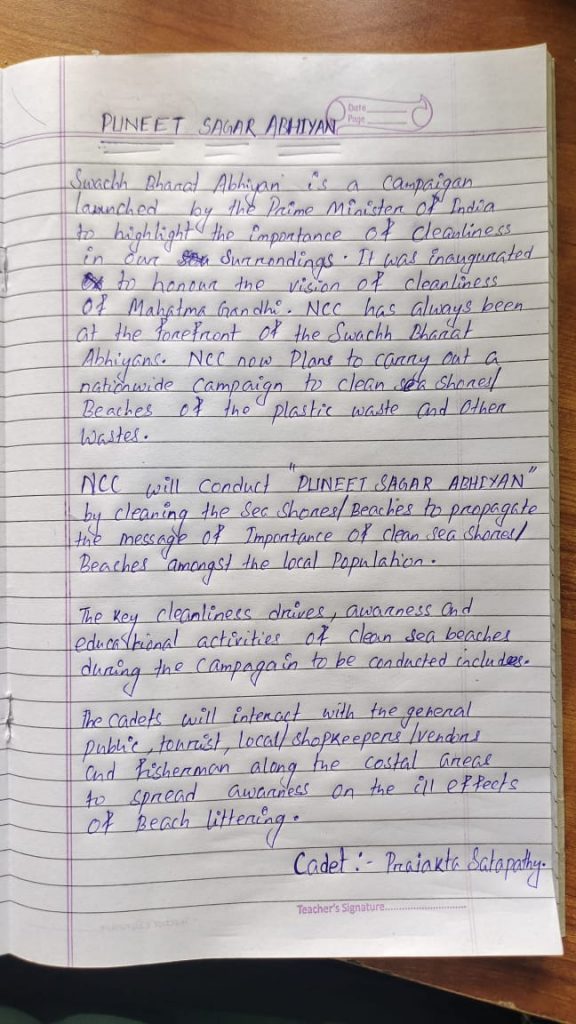 Date
Page
PUNEET SAGAR ABHIYAN
Swachh Bharat Abhiyan is a campaigan
launched by the Prime Minister of India
to highlight the importance of cleanliness
in our surrondings. It was inaugurated
to honour the vision of cleanliness
of Mahatma Gandhi. NCC has always been
at the forefront of the Swachh Bharat
Abhiyans. NCC now Plans to carry out a
nationwide campaign to clean sea shores/
Beaches of the plastic waste and other
wastes.
NCC will conduct "PUNEET SAGAR ABHIYAN"
by cleaning the Sea Shores/Beaches to propagate
the message of Importance of clean sea shores/
Beaches amongst the local Population.
The key cleanliness drives, awarness and
educational activities of clean sea beaches
during the campagain to be conducted includes.
The cadets will interact with the general
public, tourist, local/shopkeepers/vendors
and fisherman along the costal areas
to spread awarness on the ill effects
of Beach littering.
Cadet :- Prajakta Satapathy.
Teacher's Signature..............................